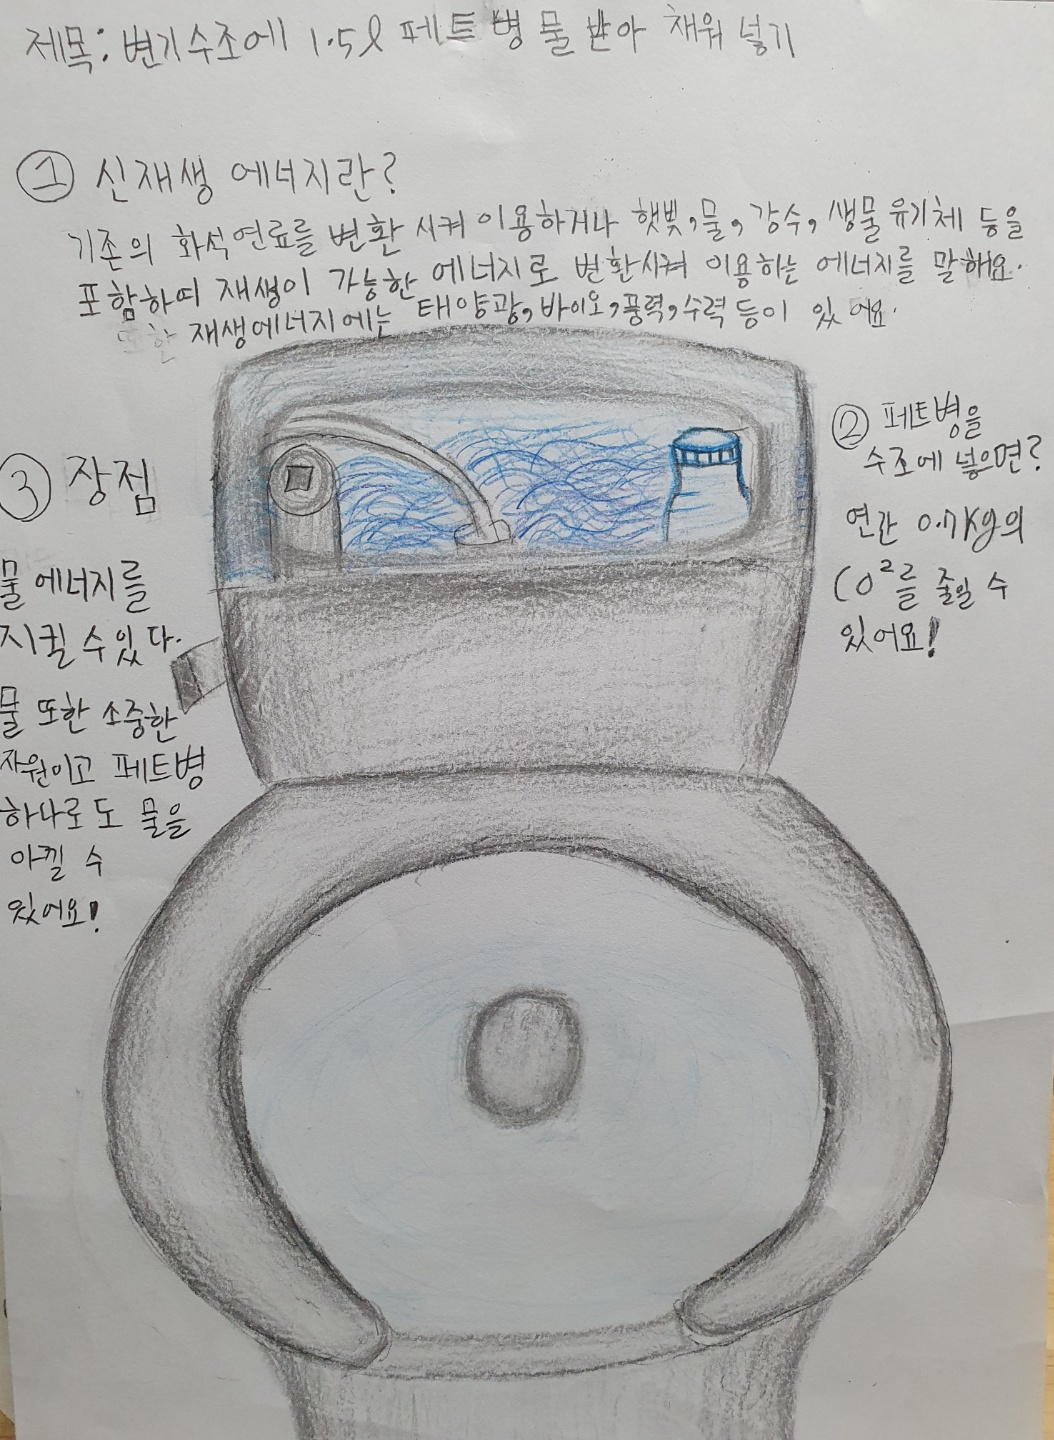 제목: 변기수조에 1.5ℓ 페트병 물 받아 채워 넣기
① 신재생 에너지란?
기존의 화석연료를 변환 시켜 이용하거나 햇빛, 물, 강수, 생물유기체 등을
포함하며 재생이 가능한 에너지로 변환시켜 이용하는 에너지를 말해요.
또한 재생에너지에는 태양광, 바이오, 풍력, 수력 등이 있어요.
② 페트병을
수조에 넣으면?
연간 0.7kg의
CO²를 줄일 수
있어요!
③ 장점
물 에너지를
지킬 수 있다.
물 또한 소중한
자원이고 페트병
하나로도 물을
아낄 수
있어요!